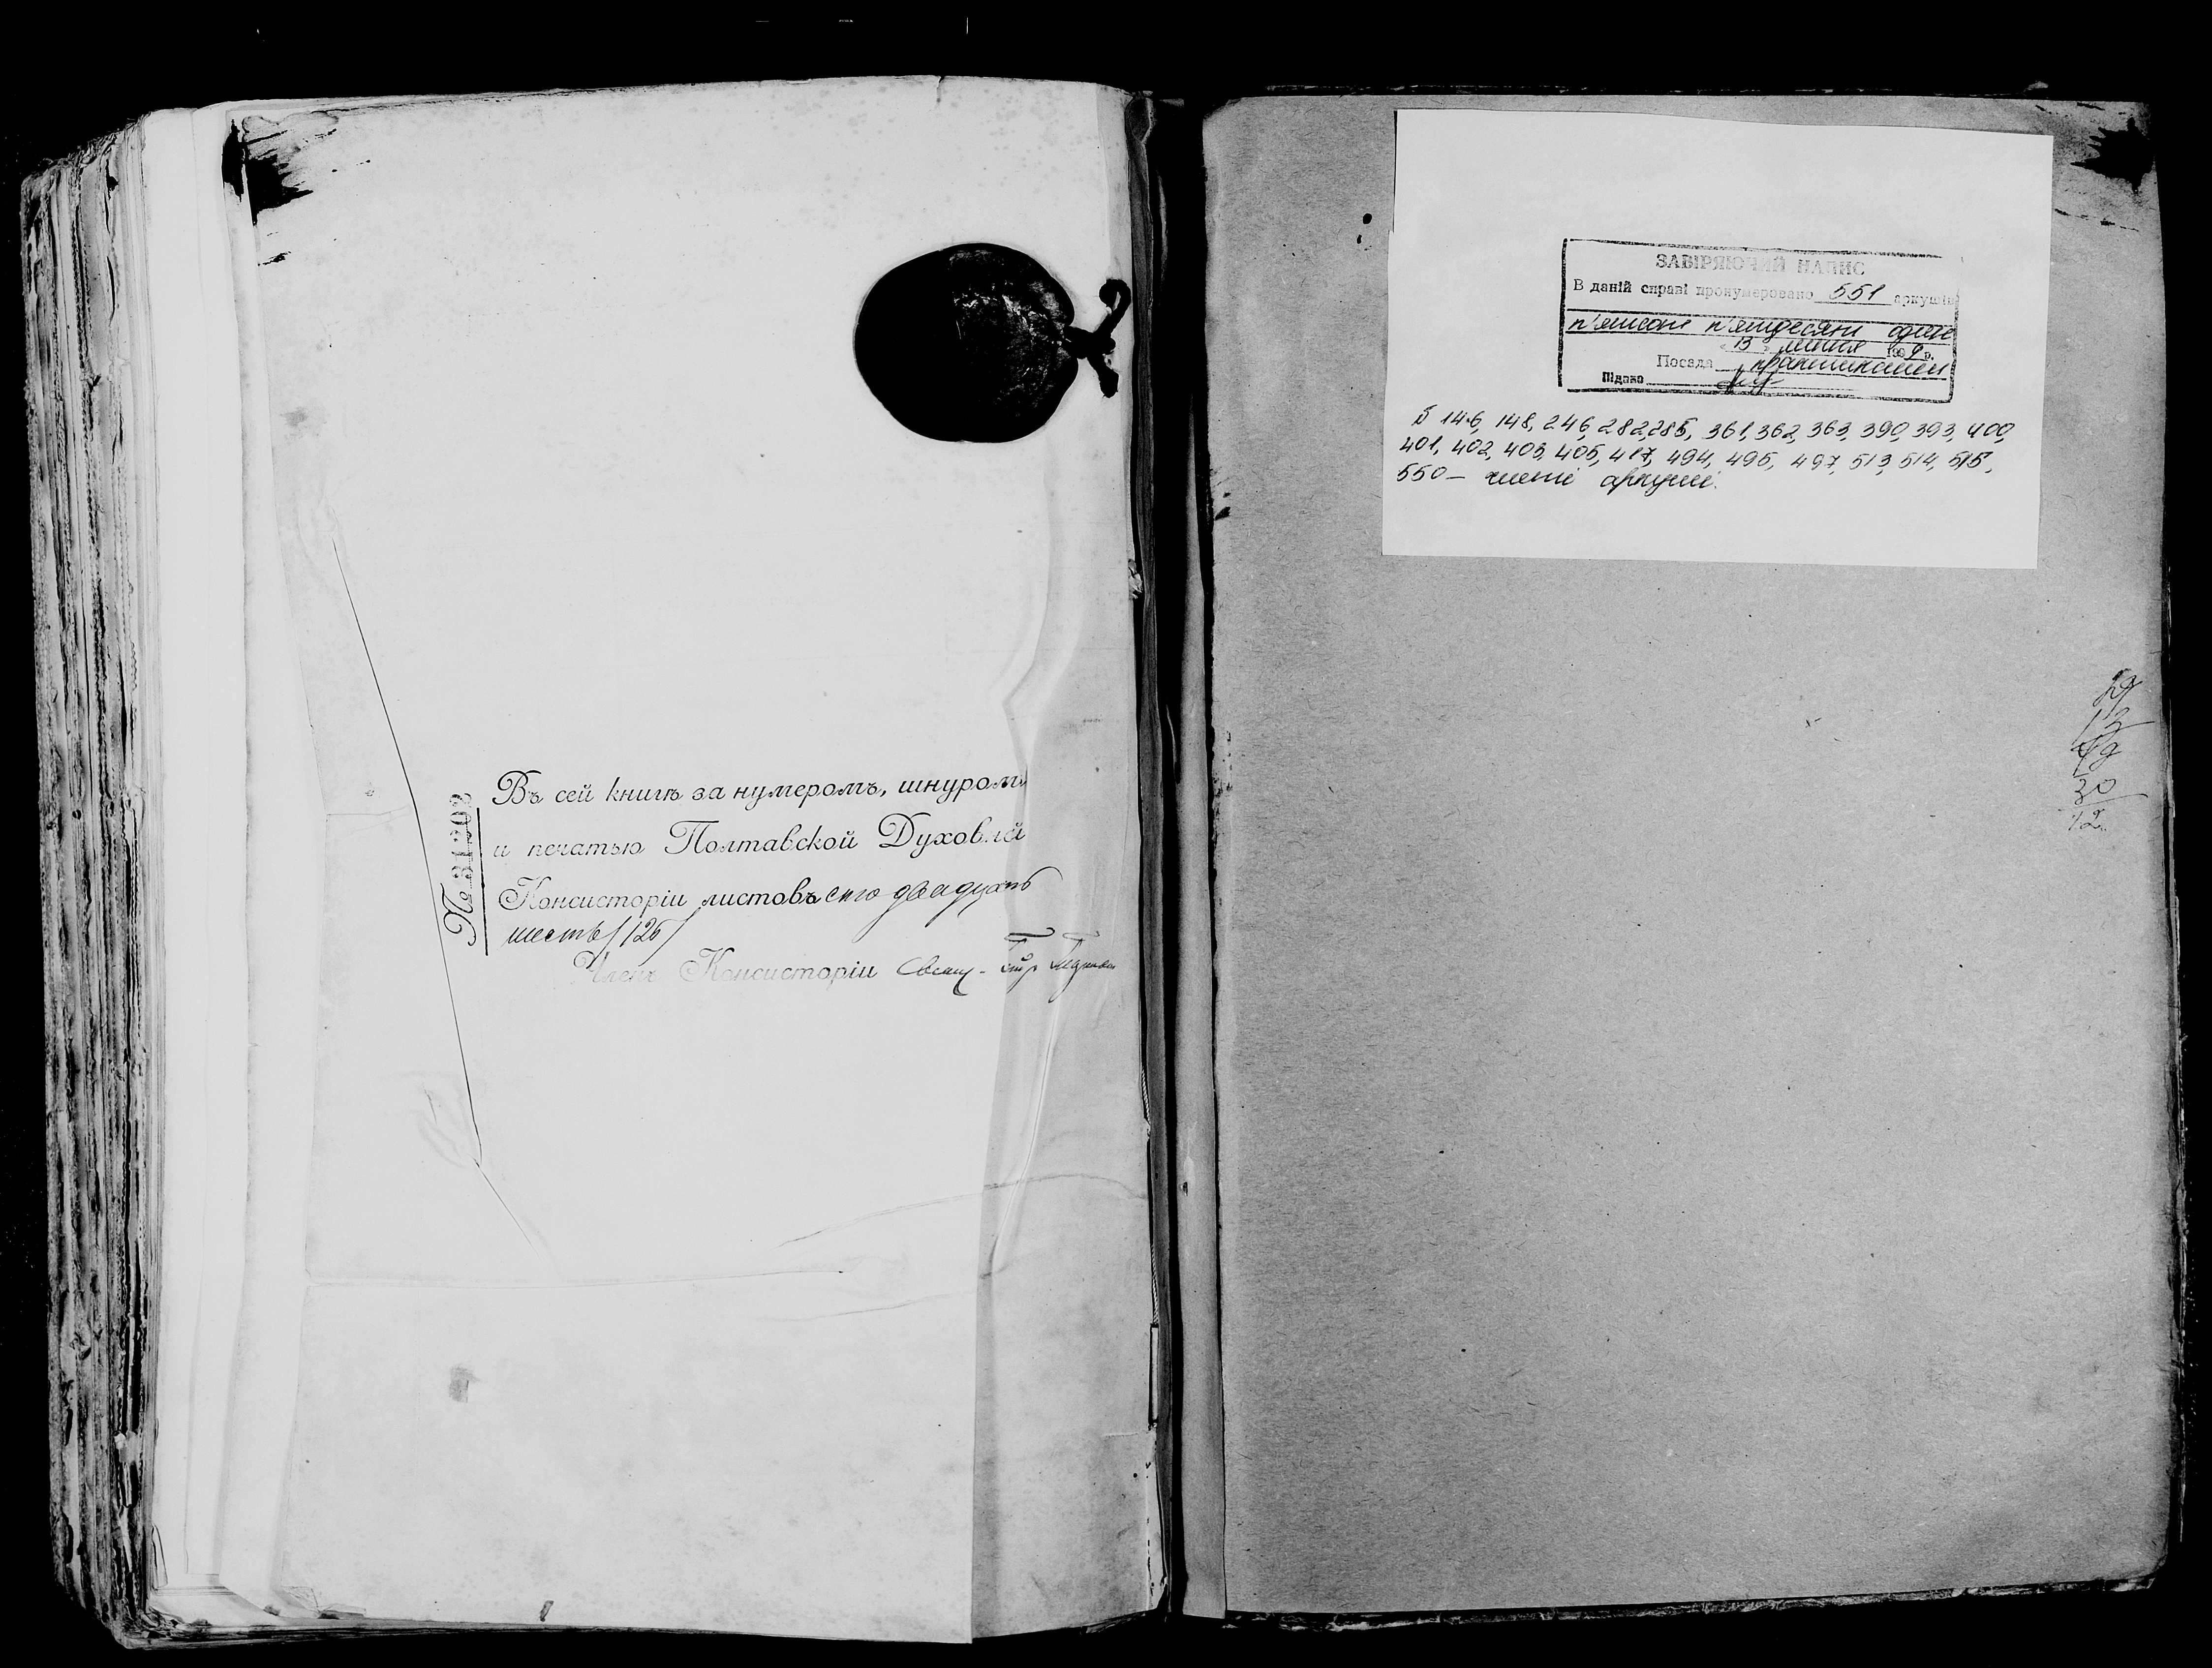 № 31303
Въ сей книгѣ за нумеромъ, шнуромъ
и печатью Полтавской Духовной
Консисторіи листовъ сто двадцать
шесть /126/
Членъ Консисторіи Свящ.
ЗАВІРЯЮЧИЙ НАПИС
В даній справі пронумеровано 551 аркушів
п'ятсот п'ятдесят один
"13" липня 199 р.
Посада практикант
Підпис
б 146, 148, 246, 282, 285, 361, 362, 363, 390, 393, 400,
401, 402, 403, 405, 417, 494, 495, 497, 513, 514, 515,
550 – чисті аркуші.
13
30
12